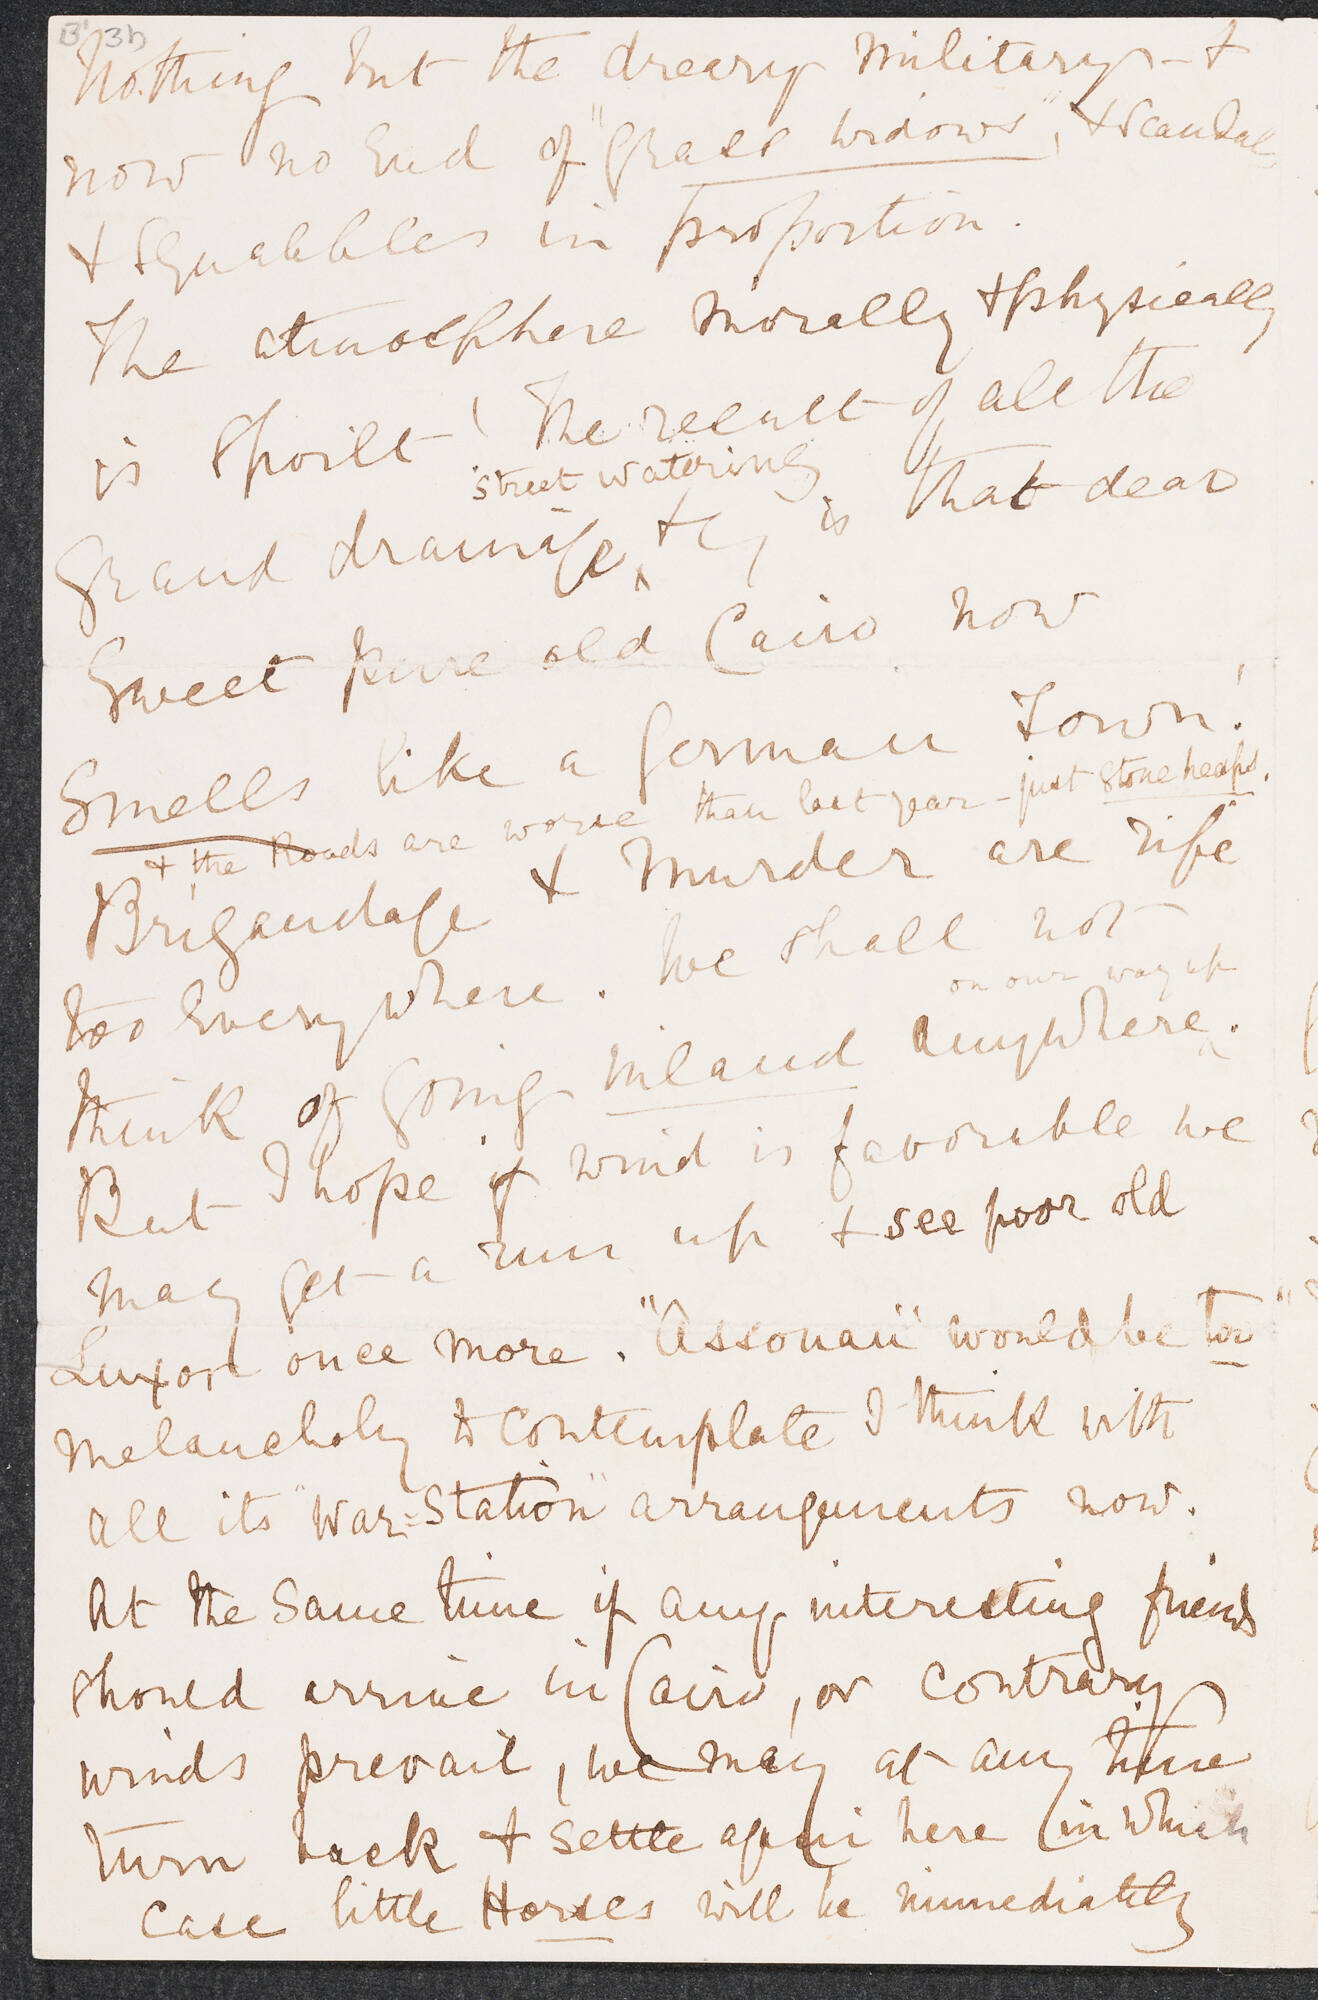 B' 3b
Nothing but the dreary military - &
now no End of "Grass widows", & Scandal
& Squabbles in proportion.
The atmosphere morally & physically
is spoilt! The result of all the
street watering
Grand drainage, &c, is that dear
Sweet pure old Cairo now
Smells like a German Town!
& the Roads are worse than last year - just Stone heaps.
Brigandage & Murder are rife
too Everywhere. We shall not
on our way up
think of going inland anywhere.
But I hope if wind is favorable we
may get a run up & see poor old
Luxor once more. "Assouan" would be too"
melancholy to contemplate I think with
all its "War-Station" arrangements now.
At the Same time if any interesting friends
should arrive in Cairo, or contrary
winds prevail, we may at any time
turn back & settle again here (in which
case little Horses will be immediately